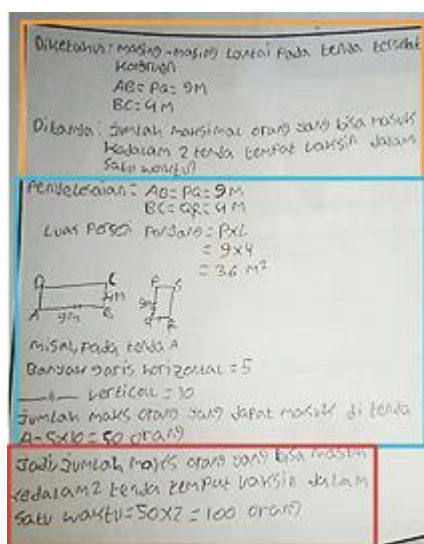 Diketahui : masing-masing lantai pada tenda tersebut
kongruen
AB = PQ = 9M
BC = 4M
Ditanya : Jumlah maksimal orang yang bisa masuk
kedalam 2 tenda tempat vaksin dalam
satu waktu
Penyelesaian : AB = PQ = 9 M
BC = QR = 4 M
Luas Persegi Panjang = P x L
= 9 x 4
= 36 M²
D C P S
4M 9m
A 9m B Q R
misal, Pada tenda A
Banyak garis horizontal = 5
vertical = 10
Jumlah maks orang yang dapat masuk di tenda
A = 5x10 = 50 orang
Jadi, Jumlah maks orang yang bisa masuk
kedalam 2 tenda tempat vaksin dalam
satu waktu = 50 x 2 = 100 orang